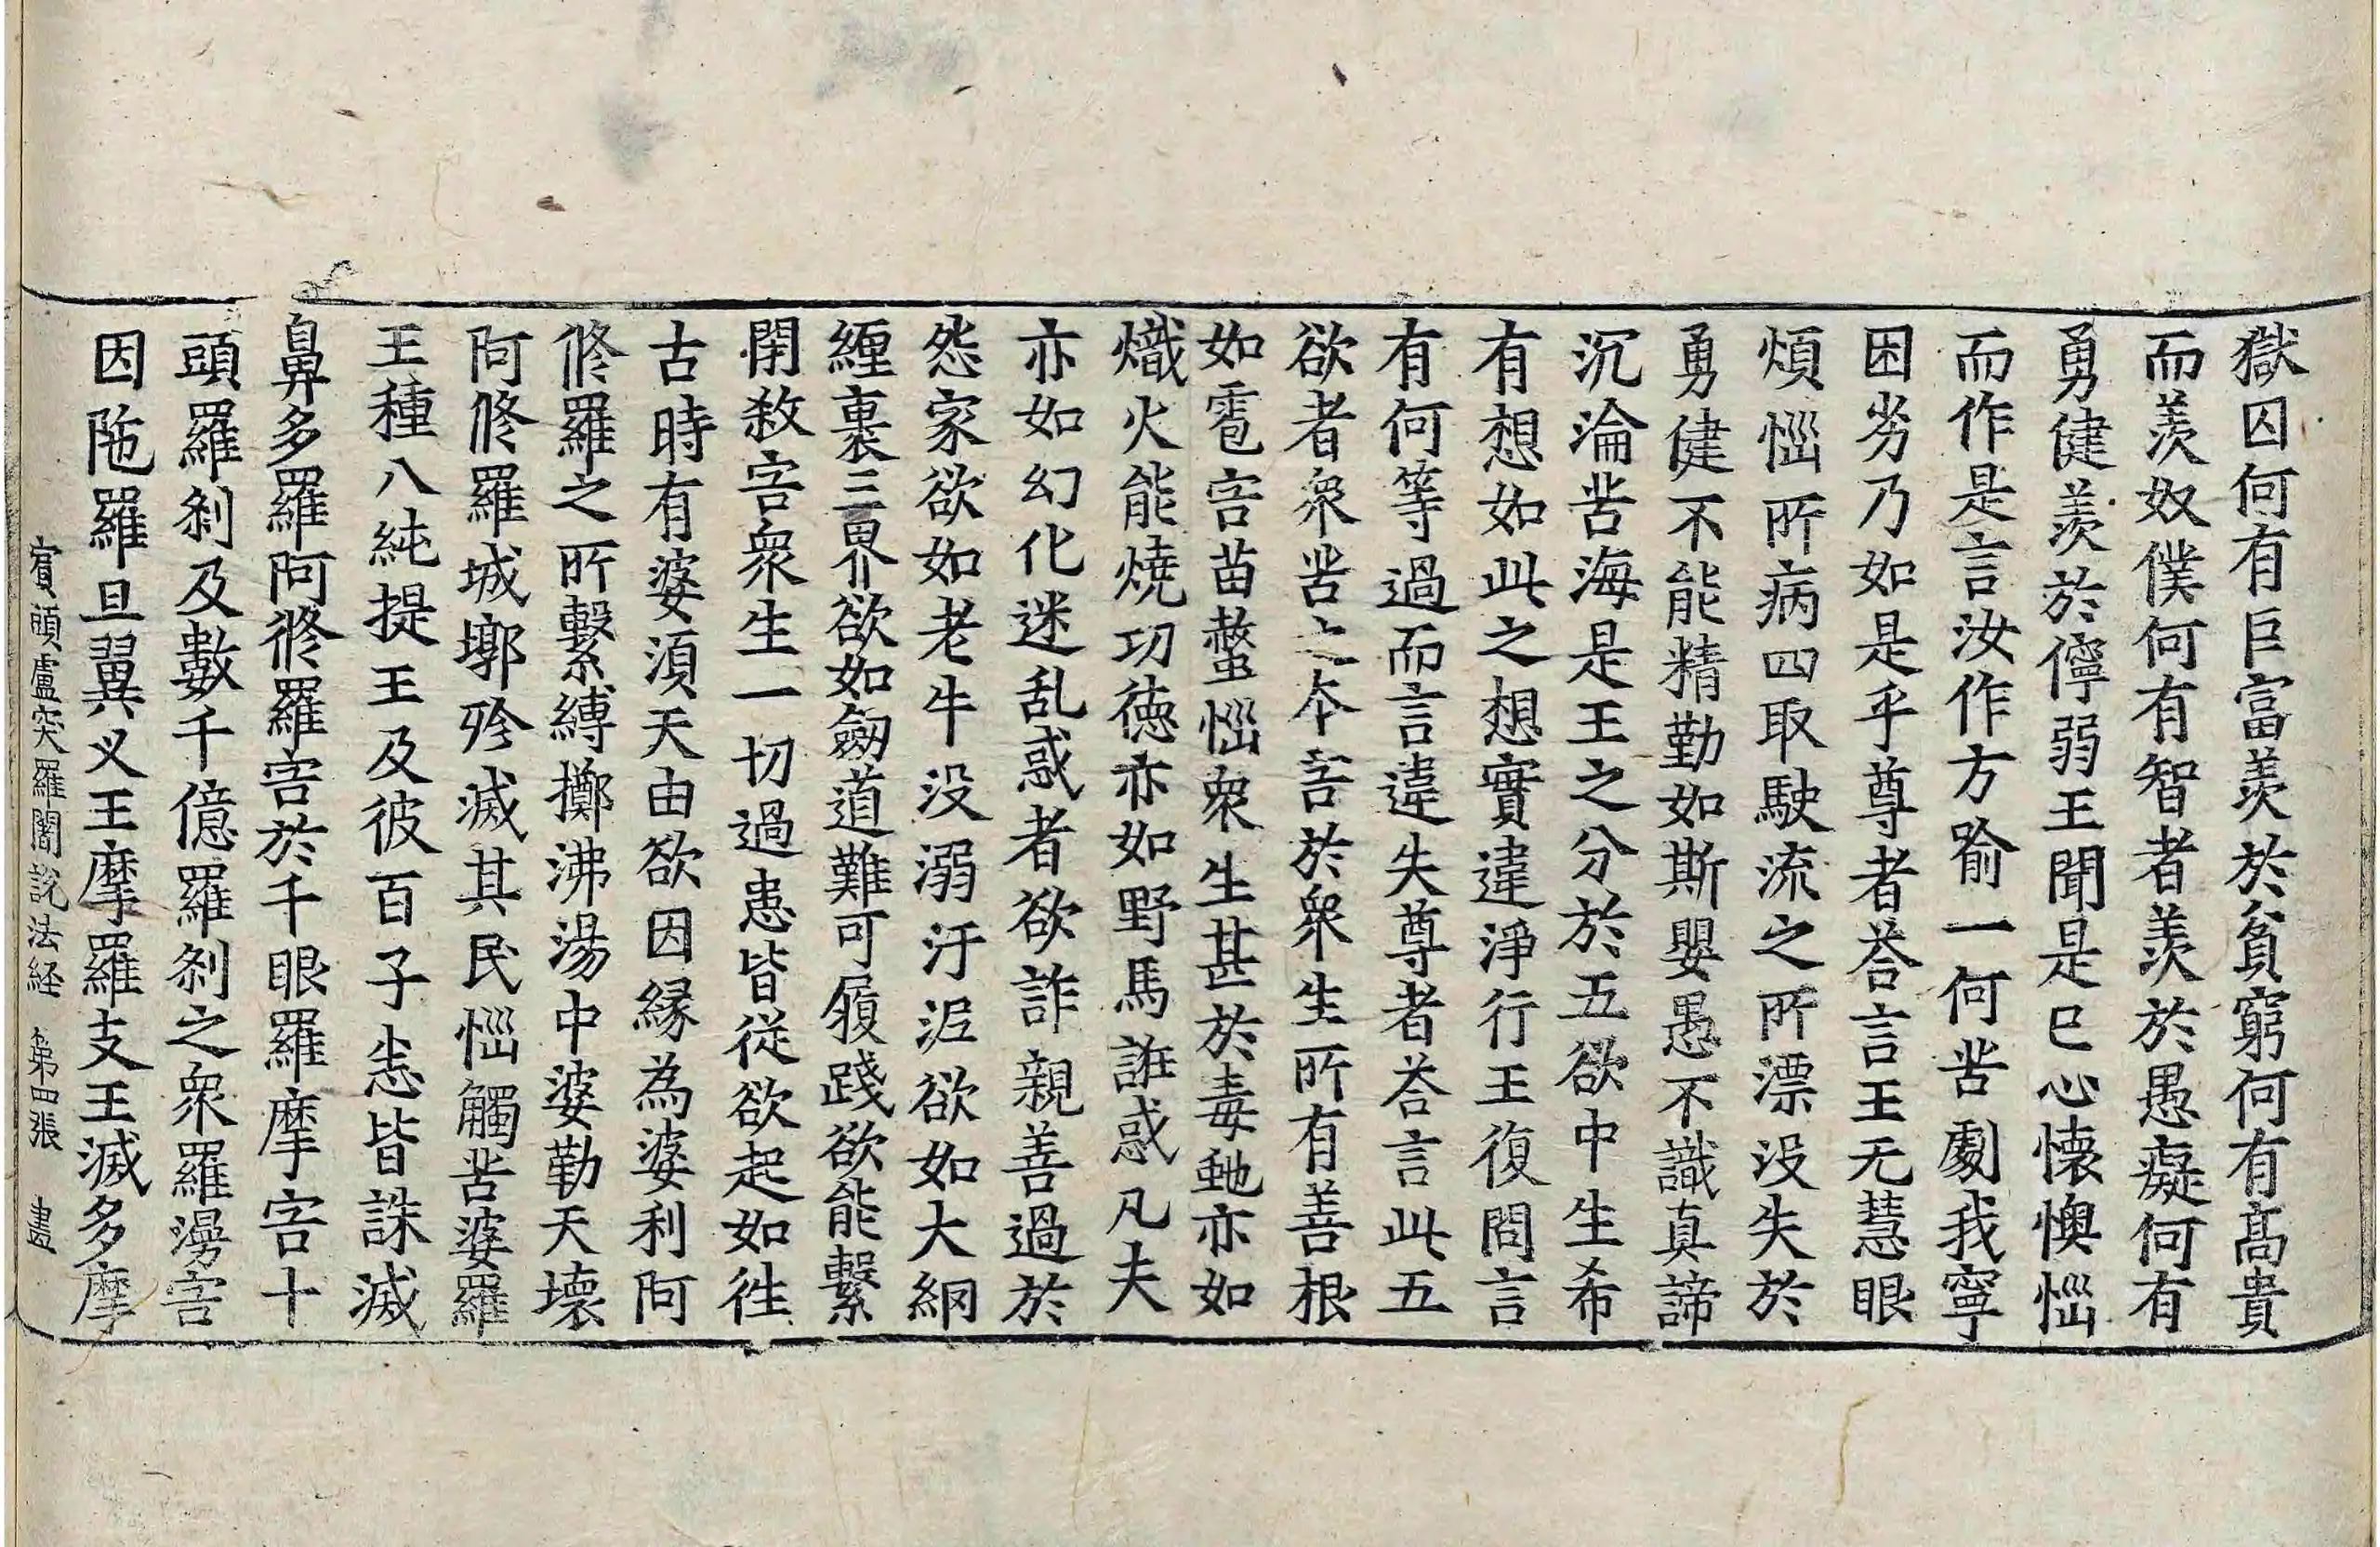 獄囚何有巨富羨於貧窮何有髙貴
而羨奴僕何有智者羨於愚癡何有
勇健羨於儜弱王聞是已心懐懊惱
而作是言汝作方喻一何苦劇我寧
困劣乃如是乎尊者荅言王无慧眼
煩惱所病四取駛流之所漂没失於
勇健不能精勤如斯嬰愚不識真諦
沉淪苦海是王之分於五欲中生希
有想如此之想實違淨行王復問言
有何等過而言違失尊者荅言此五
欲者衆苦之本害於衆生所有善根
如雹害苗螫惱衆生甚於毒虵亦如
熾火能燒功徳亦如野馬誑惑凡夫
亦如幻化迷乱惑者欲詐親善過於
怨家欲如老牛没溺汙泥欲如大網
纏裹三界欲如劒道難可履踐欲能繫
閇殺害衆生一切過患皆從欲起如徃
古時有婆湏天由欲因縁為婆利阿
修羅之所繫縛擲沸湯中婆勤天壊
阿修羅城墎殄滅其民惱觸苦婆羅
王種八純提王及彼百子恙皆誅滅
鼻多羅阿修羅害於千眼羅摩害十
頭羅刹及數千億羅刹之衆羅湯害
因陁羅旦翼义王摩羅支王滅多摩
賓頭盧突羅闍說法経 第四張 盡